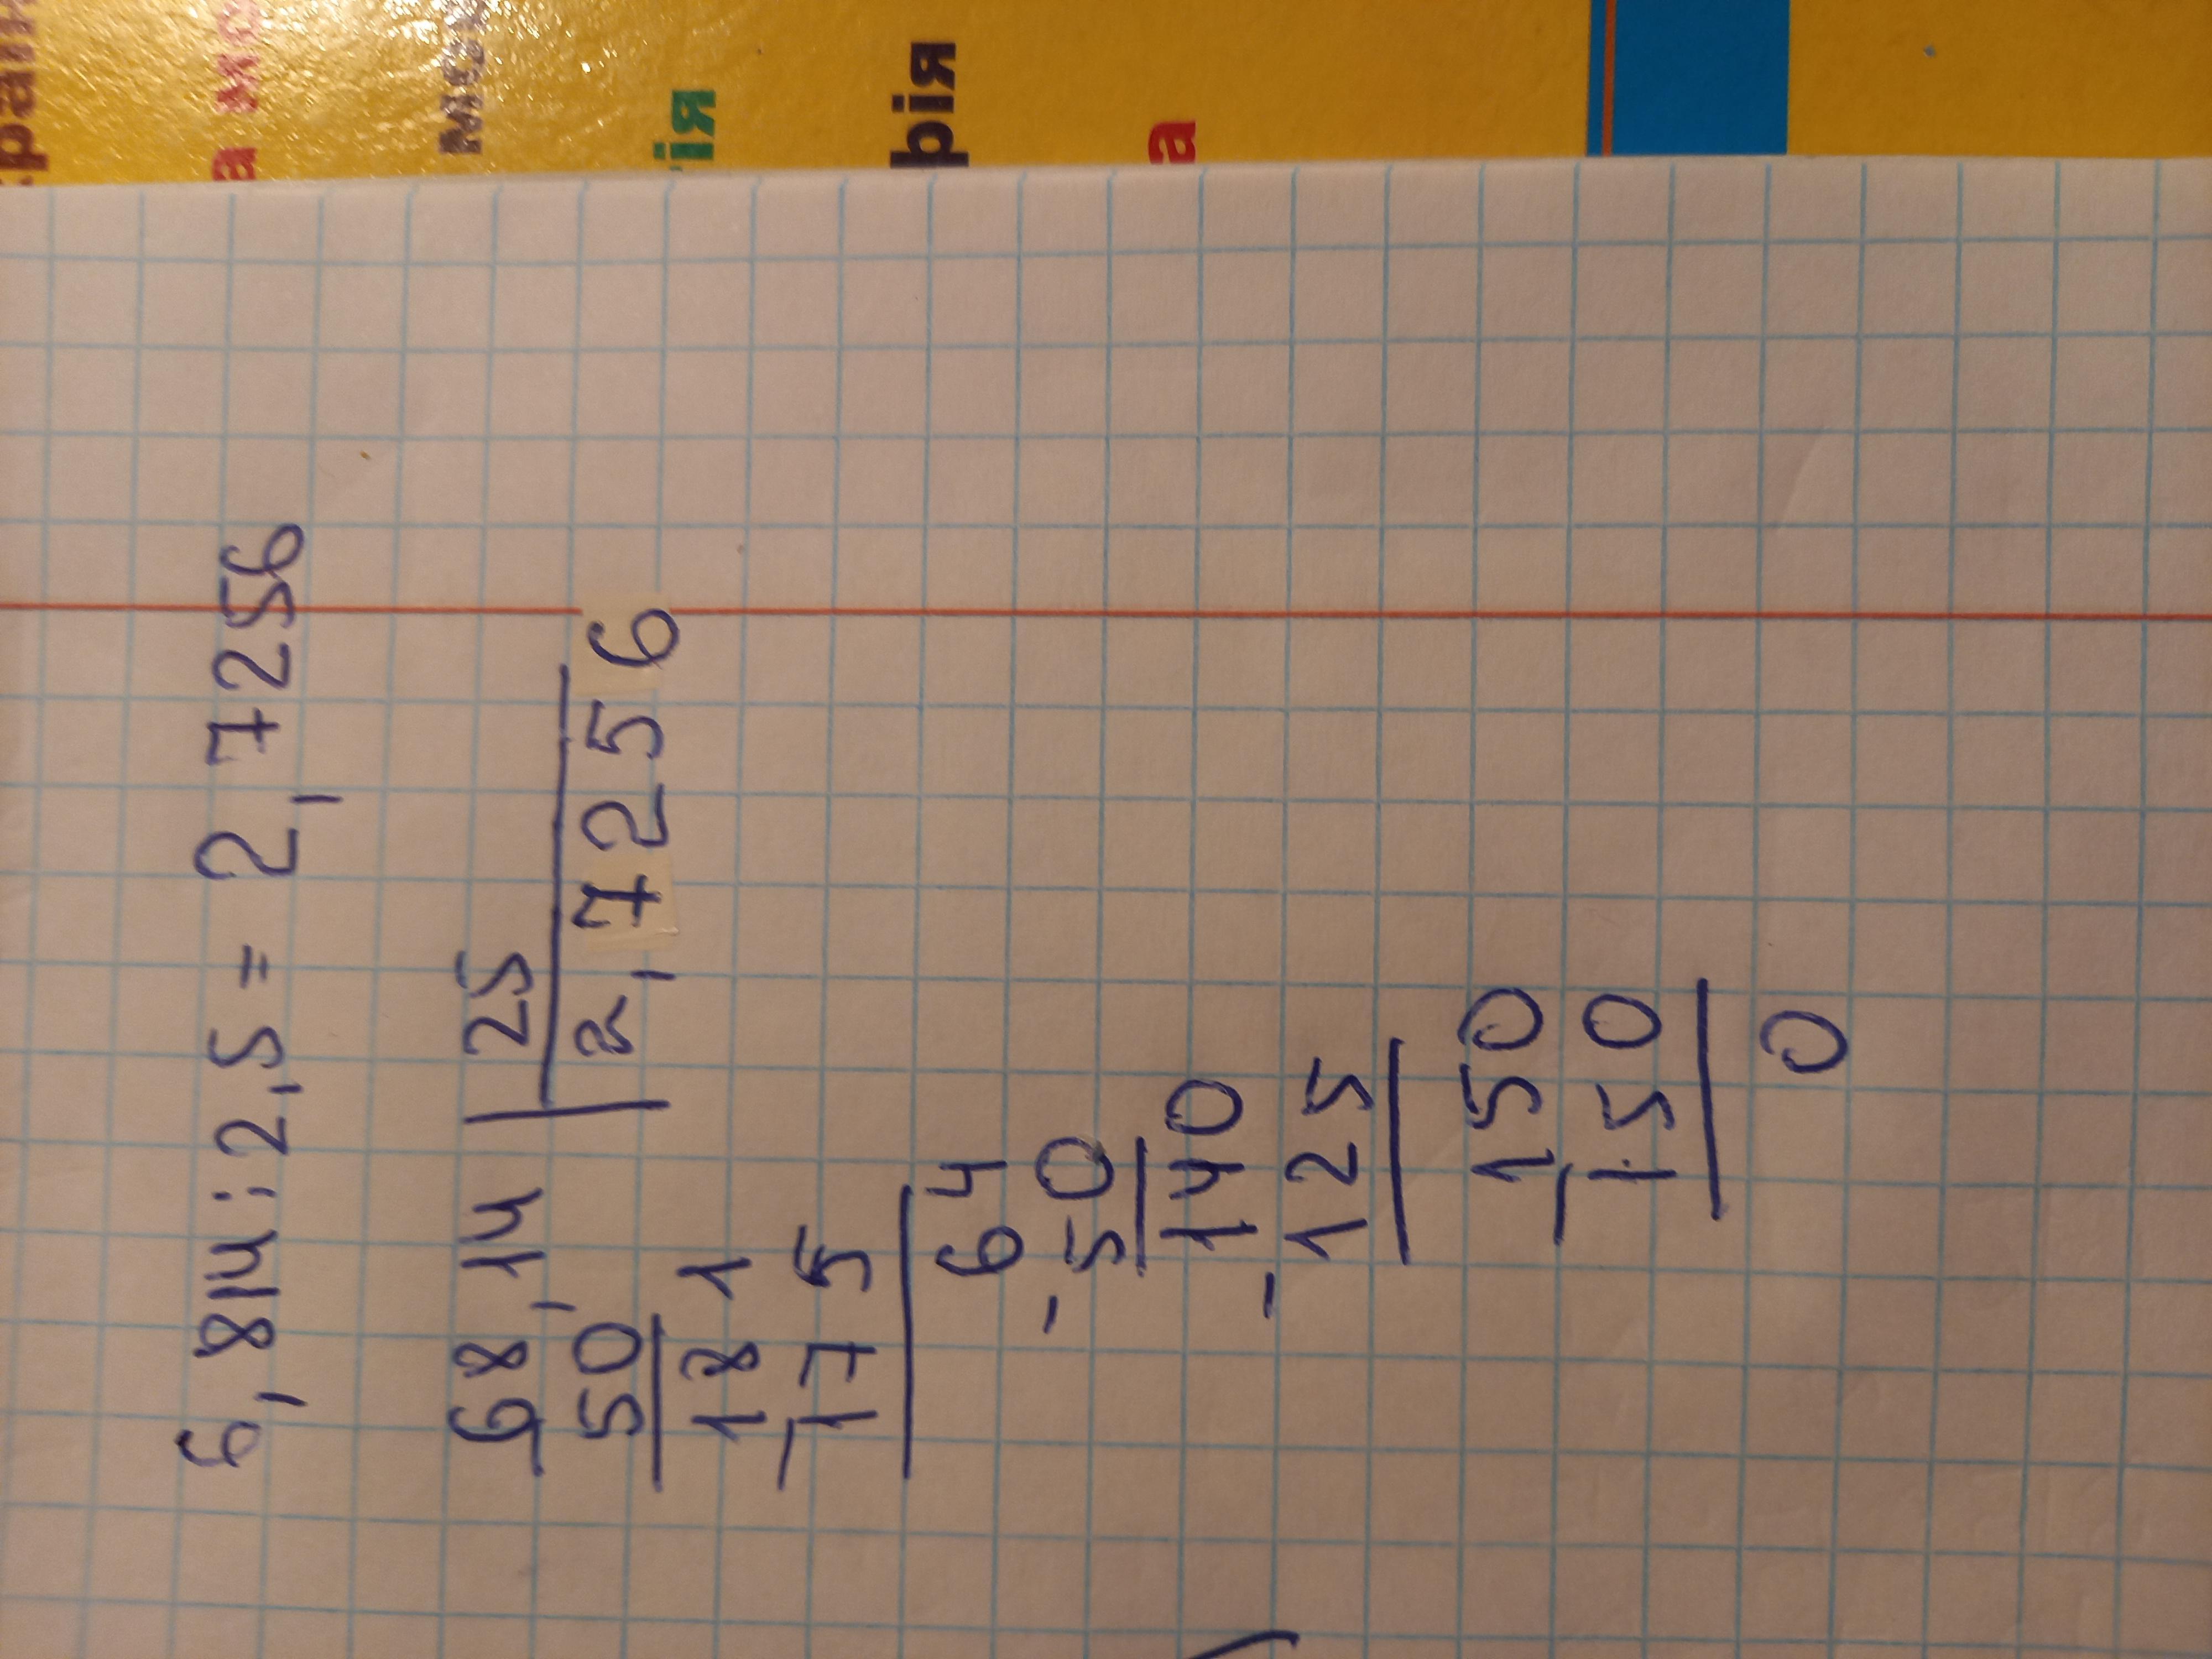 6,814:2,5 = 2,7256
68,14 | 25
50 2,7256
181
- 175
64
- 50
140
- 125
150
- 150
0
а
рія
ія